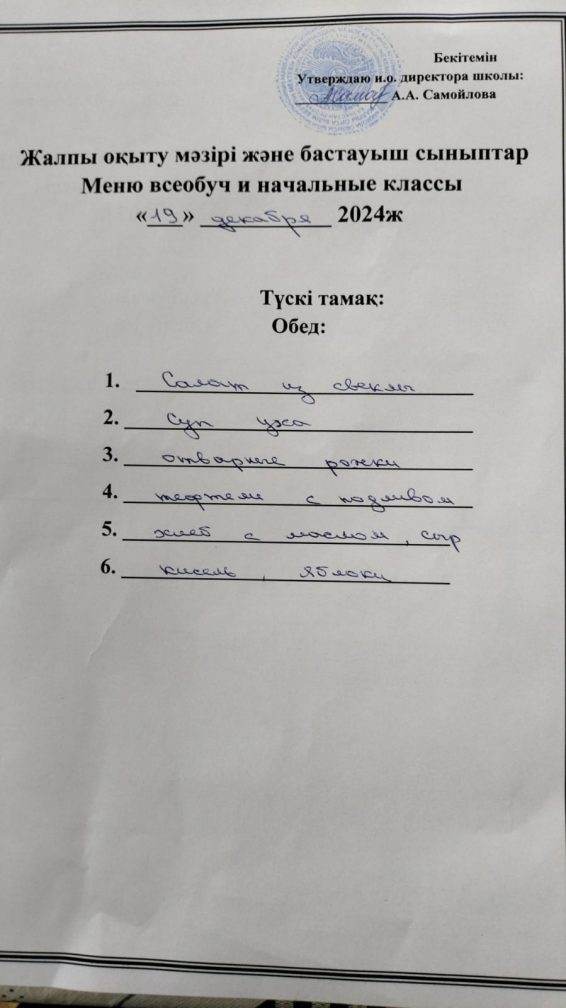 Бекітемін
Утверждаю и.о. директора школы:
А.А. Самойлова
Жалпы оқыту мәзірі және бастауыш сыныптар
Меню всеобуч и начальные классы
«19» декабря 2024ж
Түскі тамақ:
Обед:
1. Салат из свеклы
2. Суп уха
3. отварные рожки
4. тефтели с подливом
5. хлеб с маслом, сыр
6. кисель, яблоки